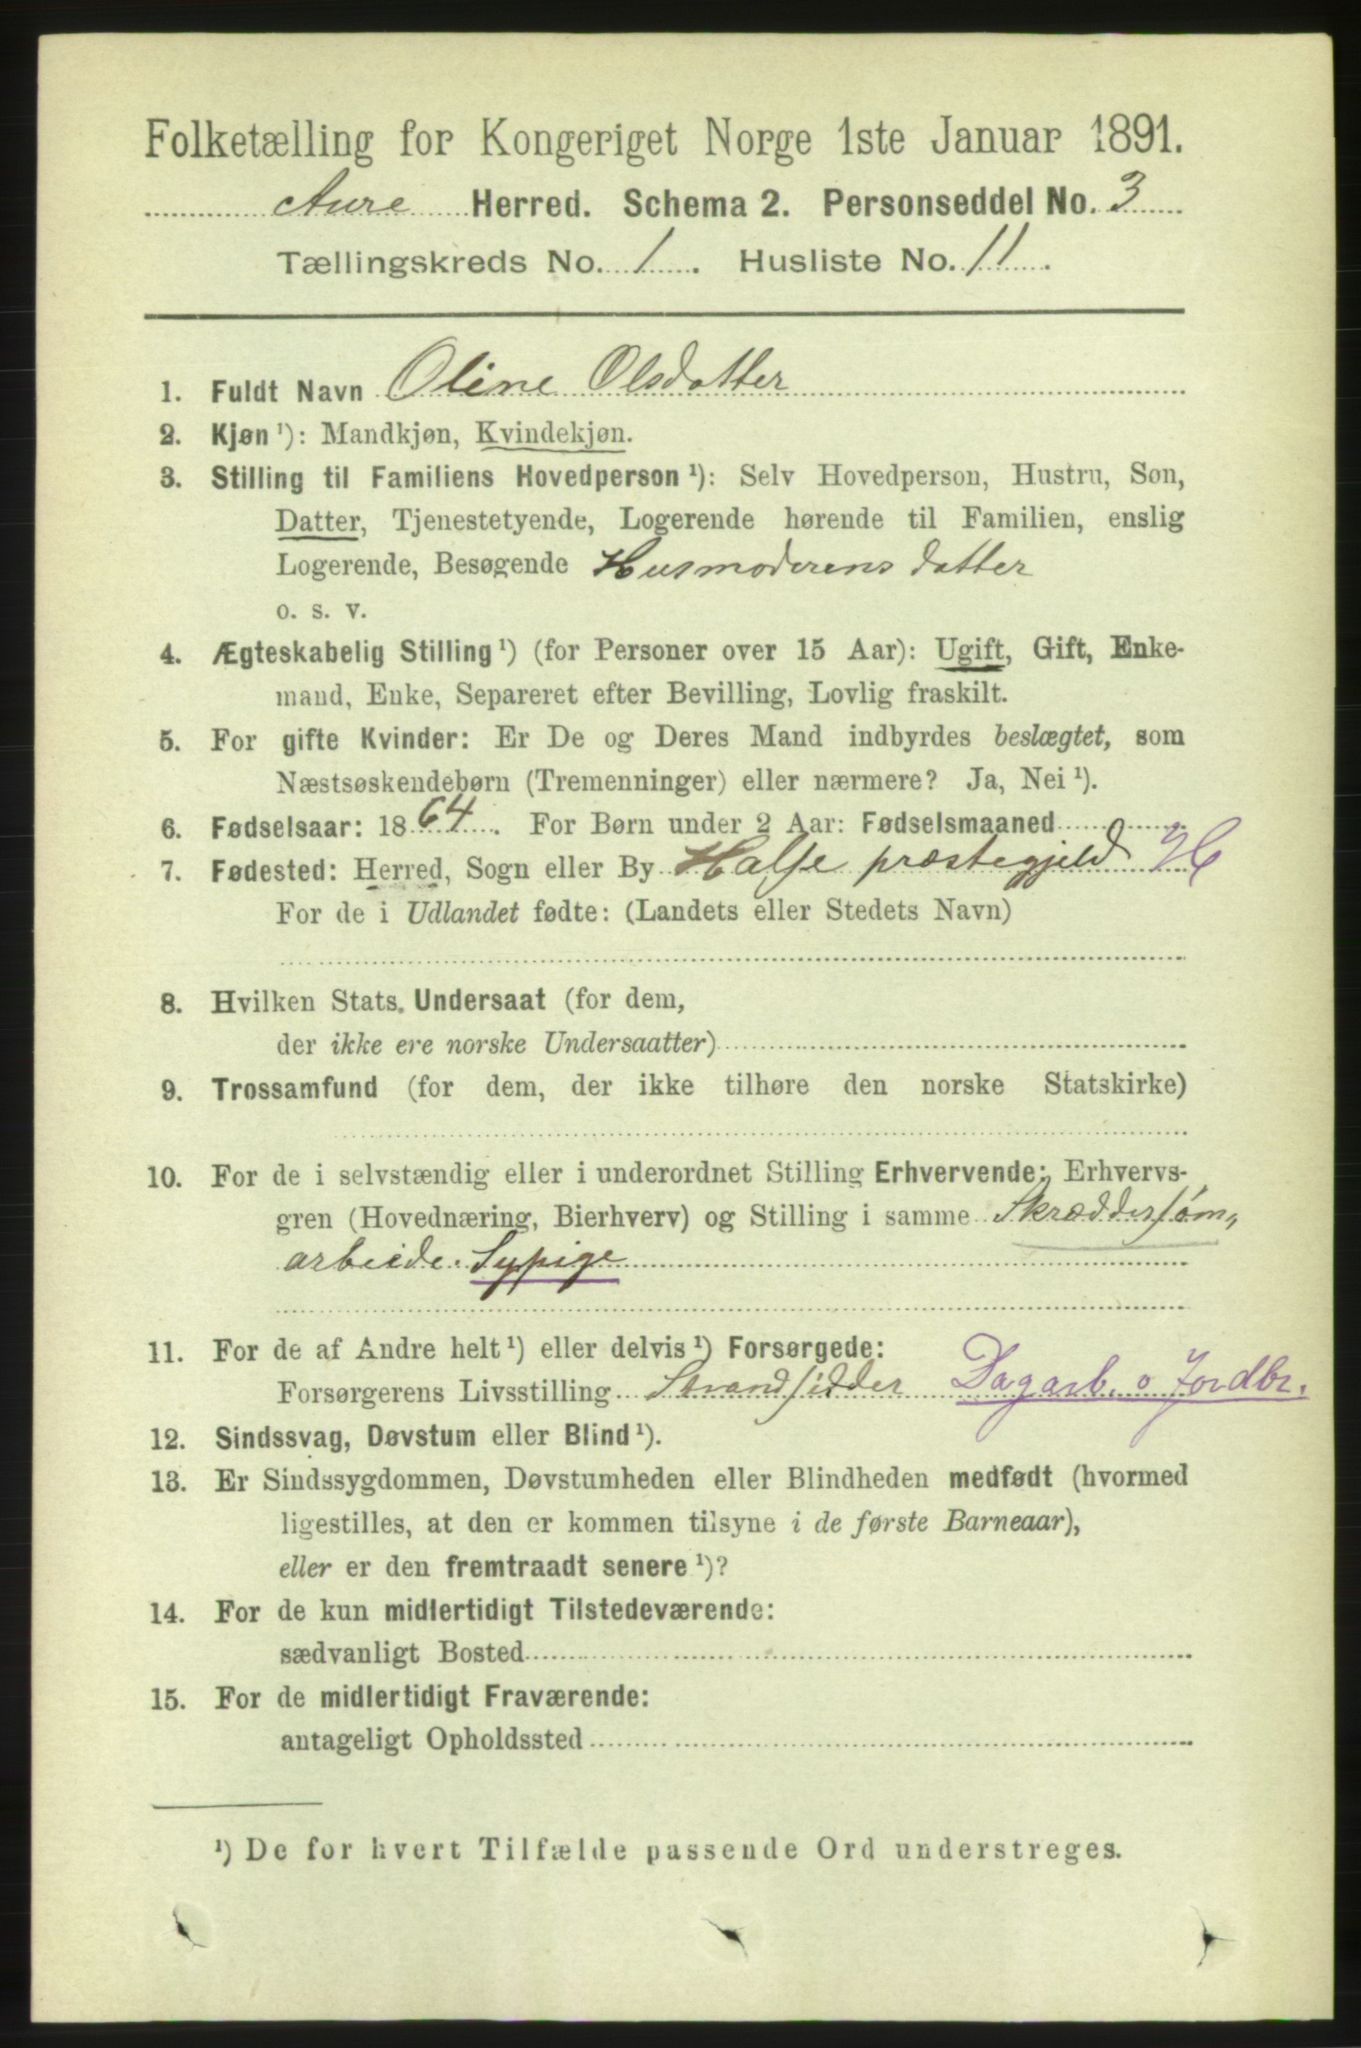 Folketælling for Kongeriget Norge 1ste Januar 1891.
Aure Herred. Schema 2. Personseddel No. 3
Tællingskreds No. 1. Husliste No. 11.
1. Fuldt Navn Oline Olsdatter
2. Kjøn ¹): Mandkjøn, Kvindekjøn.
3. Stilling til Familiens Hovedperson ¹): Selv Hovedperson, Hustru, Søn,
Datter, Tjenestetyende, Logerende hørende til Familien, enslig
Logerende, Besøgende Husmoderens datter
o. s. v.
4. Ægteskabelig Stilling ¹) (for Personer over 15 Aar): Ugift, Gift, Enke-
mand, Enke, Separeret efter Bevilling, Lovlig fraskilt.
5. For gifte Kvinder: Er De og Deres Mand indbyrdes beslægtet, som
Næstsøskendebørn (Tremenninger) eller nærmere? Ja, Nei ¹).
6. Fødselsaar: 1864. For Børn under 2 Aar: Fødselsmaaned
7. Fødested: Herred, Sogn eller By Halse præstegjeld
For de i Udlandet fødte: (Landets eller Stedets Navn)
8. Hvilken Stats Undersaat (for dem,
der ikke ere norske Undersaatter)
9. Trossamfund (for dem, der ikke tilhøre den norske Statskirke)
10. For de i selvstændig eller i underordnet Stilling Erhvervende: Erhvervs-
gren (Hovednæring, Bierhverv) og Stilling i samme Skræddersøm,,
arbeide. Sypige
11. For de af Andre helt ¹) eller delvis ¹) Forsørgede:
Forsørgerens Livsstilling Strandsidder Dagarb. o Jordbr.
12. Sindssvag, Døvstum eller Blind ¹).
13. Er Sindssygdommen, Døvstumheden eller Blindheden medfødt (hvormed
ligestilles, at den er kommen tilsyne i de første Barneaar),
eller er den fremtraadt senere ¹)?
14. For de kun midlertidigt Tilstedeværende:
sædvanligt Bosted
15. For de midlertidigt Fraværende:
antageligt Opholdssted
¹) De for hvert Tilfælde passende Ord understreges.